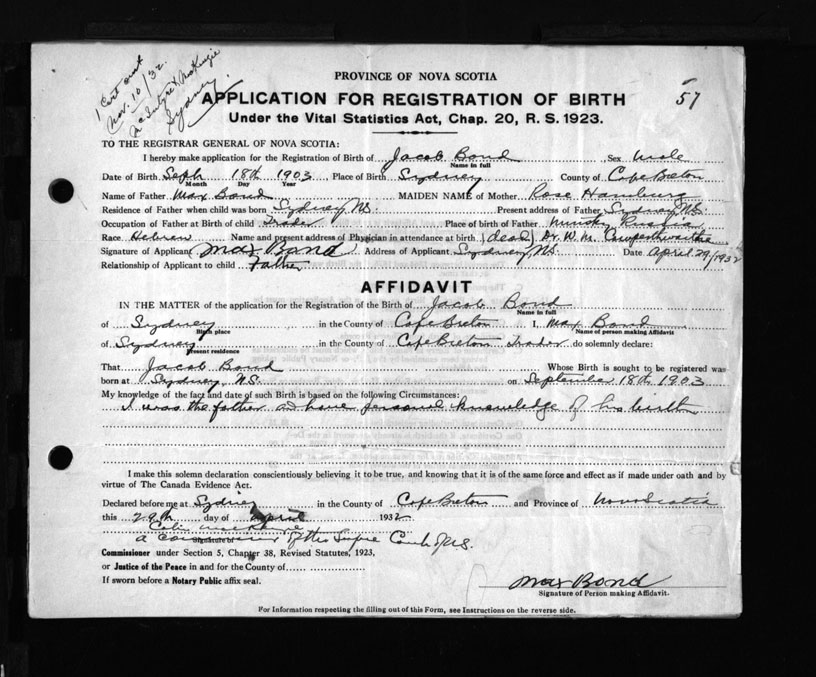 1 Cert sent
Nov. 10/32.
McIntyre & McKenzie
Sydney.
57
PROVINCE OF NOVA SCOTIA
APPLICATION FOR REGISTRATION OF BIRTH
Under the Vital Statistics Act, Chap. 20, R. S. 1923.
TO THE REGISTRAR GENERAL OF NOVA SCOTIA:
I hereby make application for the Registration of Birth of Jacob Bond Sex Male
Name in full
Date of Birth Sept 18th 1903 Place of Birth Sydney County of Cape Breton
Month Day Year
Name of Father Max Bond MAIDEN NAME of Mother Rose
Residence of Father when child was born Sydney NS. Present address of Father Sydney NS
Occupation of Father at Birth of child Trader Place of birth of Father Minsk, Russia
Race Hebrew Name and present address of Physician in attendance at birth (dead) Dr. W. M.
Signature of Applicant Max Bond Address of Applicant Sydney, NS. Date April 29/1932
Relationship of Applicant to child Father
AFFIDAVIT
IN THE MATTER of the application for the Registration of the Birth of Jacob Bond
Name in full
of Sydney in the County of Cape Breton I, Max Bond
Birth place Name of person making Affidavit
of Sydney in the County of Cape Breton Trador do solemnly declare:
Present residence
That Jacob Bond Whose Birth is sought to be registered was
born at Sydney N.S. on September 18th 1903
My knowledge of the fact and date of such Birth is based on the following Circumstances:
I was the father and have personel knowledge of his birth
I make this solemn declaration conscientiously believing it to be true, and knowing that it is of the same force and effect as if made under oath and by
virtue of The Canada Evidence Act.
Declared before me at Sydney in the County of Cape Breton and Province of Nova Scotia
this 29th day of April 1932
Colin
a Commissioner of the Supre Court of NS.
Commissioner under Section 5, Chapter 38, Revised Statutes, 1923,
or Justice of the Peace in and for the County of
If sworn before a Notary Public affix seal.
Max Bond
Signature of Person making Affidavit.
For Information respecting the filling out of this Form, see Instructions on the reverse side.